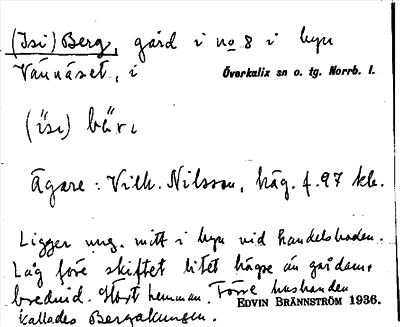 (Isi) Berg, gård i no 8 i byn
Vännäset, i Överkalix sn o. tg. Norrb. l.
(ı̋sı) bűrı
Ägare: Vilh. Nilsson, häg. f. 97 kb.
Ligger ung. mitt i byn vid handelsboden.
Låg före skiftet litet högre än gårdarna
bredvid. Stort hemman. Förre husbonden
kallades Bergakungen.
EDVIN BRÄNNSTRÖM 1936.